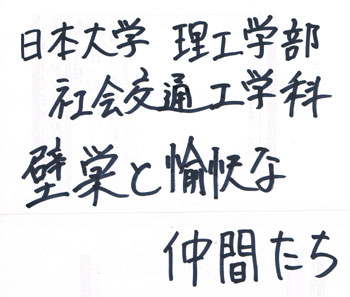 日本大学 理工学部
社会交通工学科
壁巣と愉快な
仲間たち